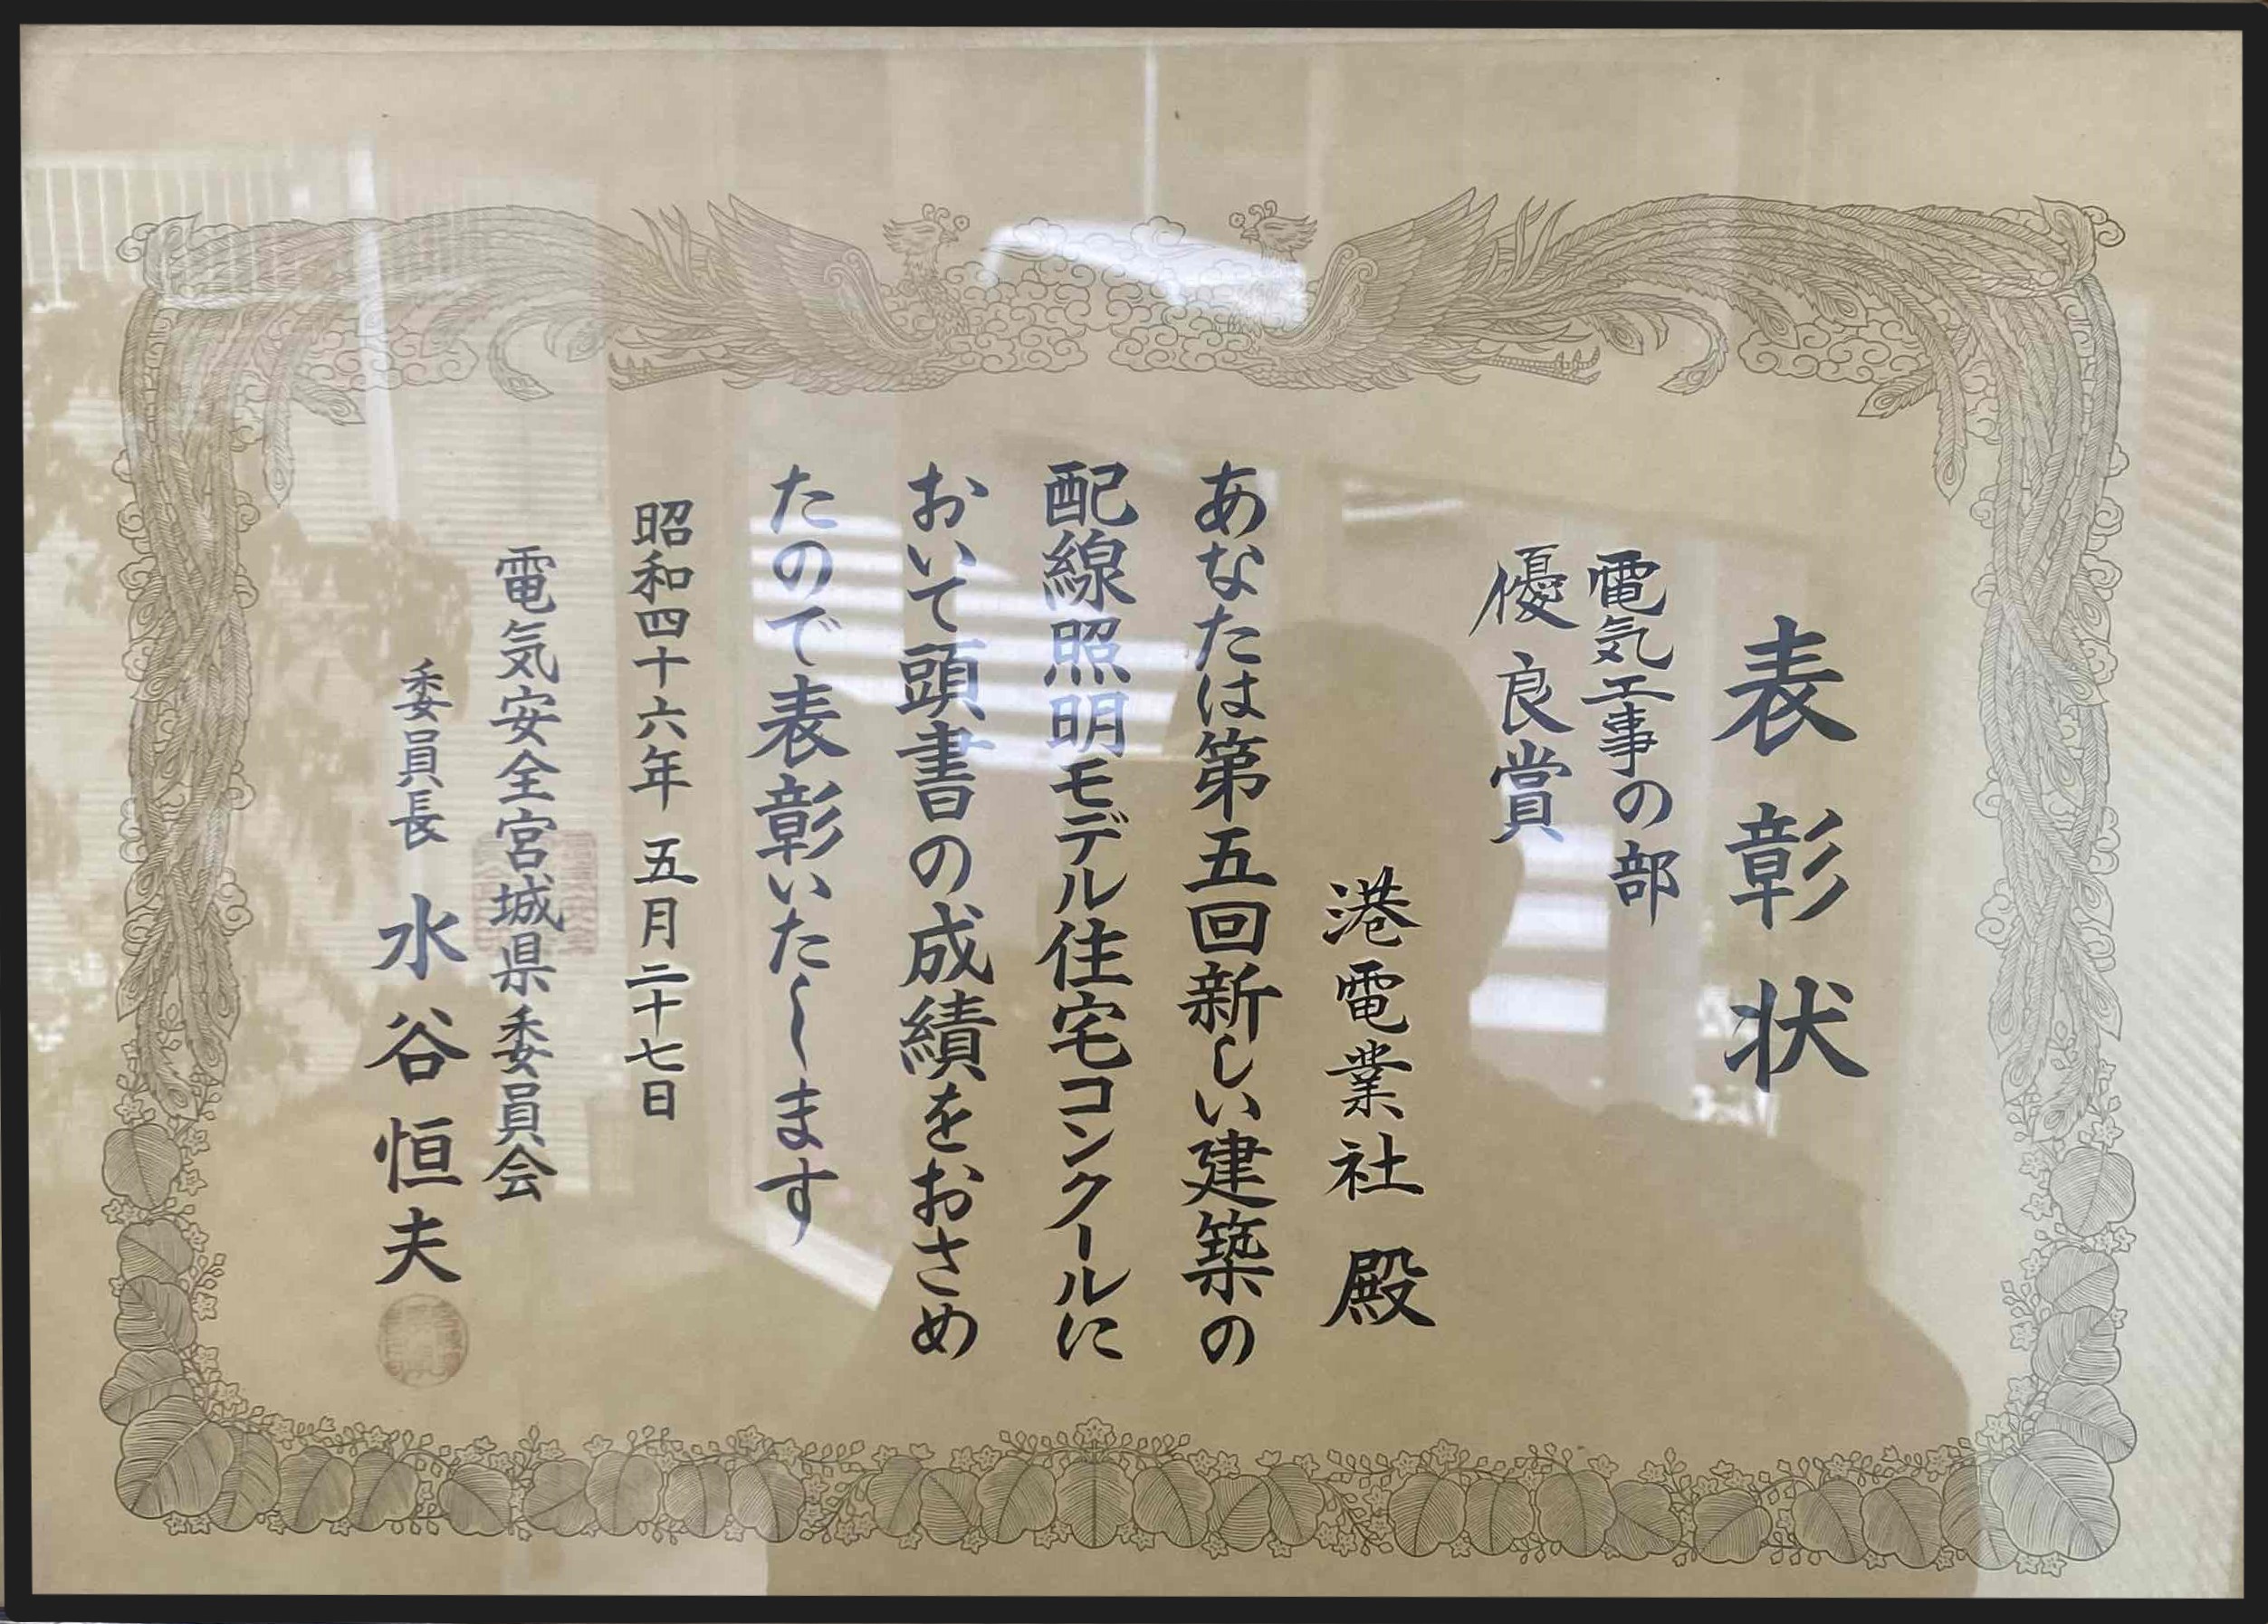 表彰状
電気工事の部
優良賞
港電業社 殿
あなたは第五回新しい建築の
配線照明モデル住宅コンクールに
おいて頭書の成績をおさめ
たので表彰いたします
昭和四十六年 五月二十七日
電気安全宮城県委員会
委員長 水谷恒夫